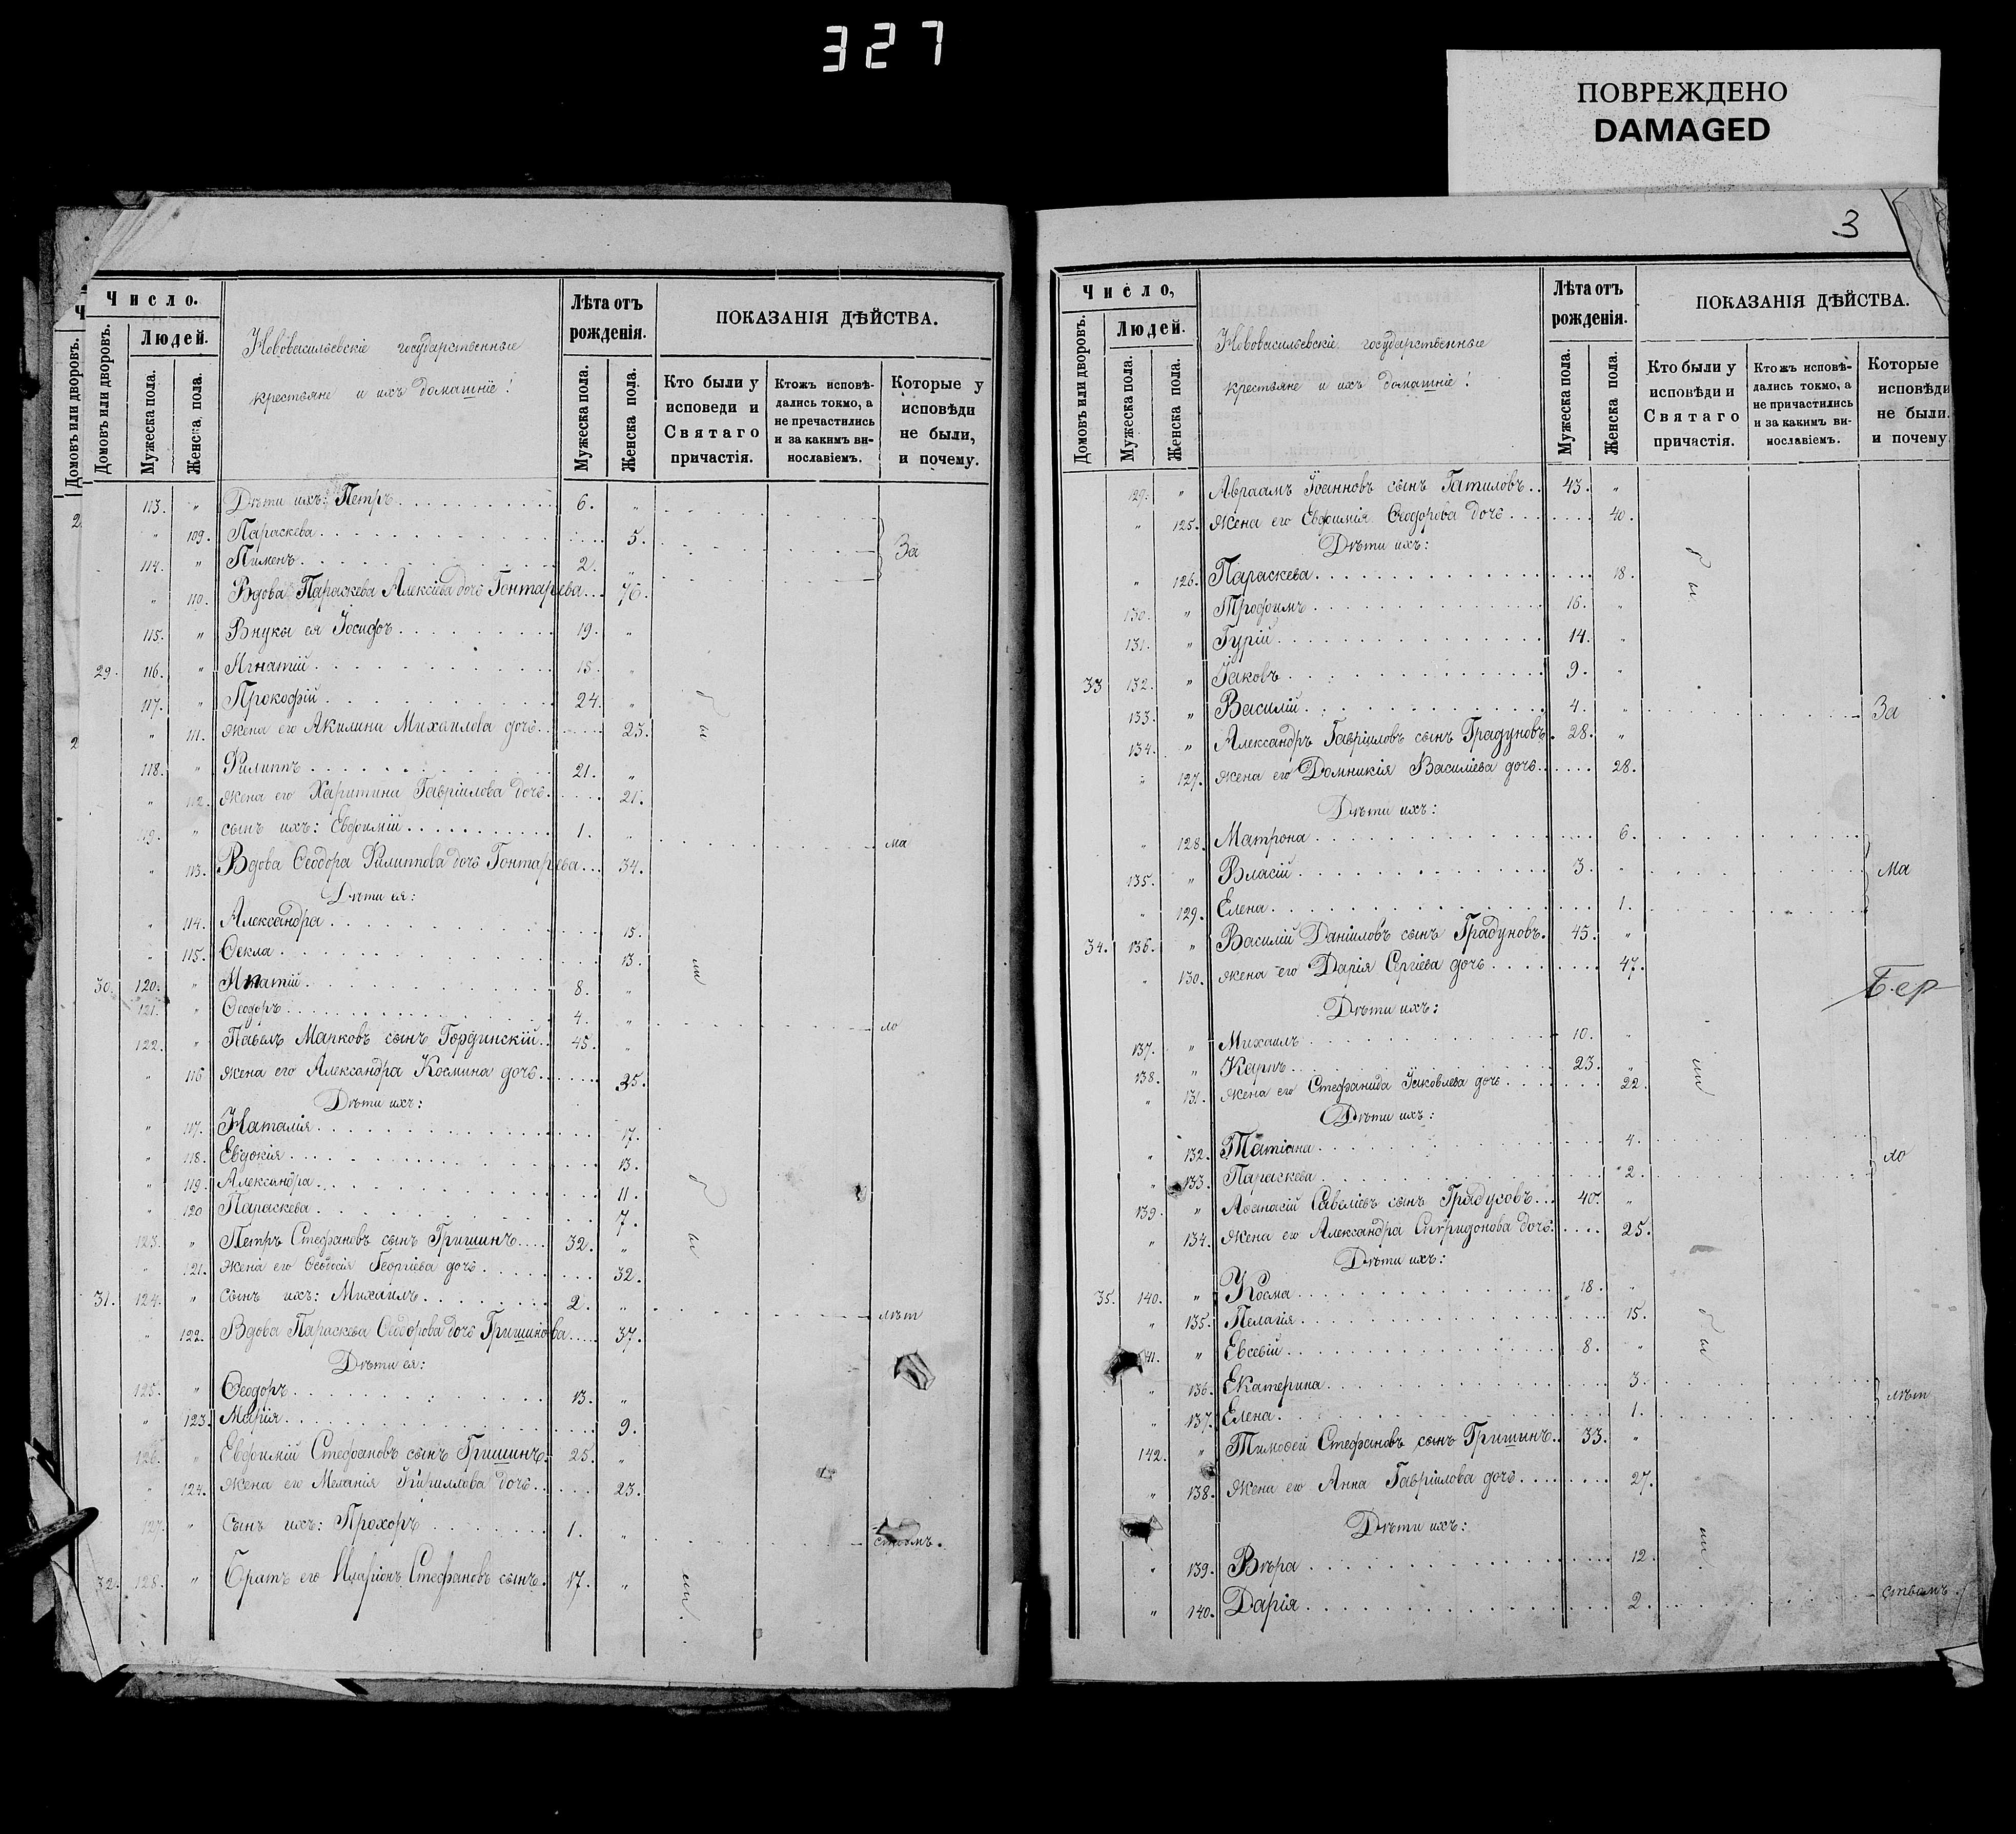 327
ПОВРЕЖДЕНО
DAMAGED
Число.
Людей.
Домовъ или дворовъ.
Домовъ или дворовъ.
Мужеска пола.
Женска пола.
Нововасильевскіе государственные
крестьяне и ихъ домашніе!
Лѣта отъ
рожденія.
Мужеска пола.
Женска пола.
ПОКАЗАНІЯ ДѢЙСТВА.
Кто были у
исповеди и
Святаго
причастія.
Ктожъ исповѣ-
дались токмо, а
не пречастились
и за какимъ ви-
нословіемъ.
Которые у
исповѣди
не были,
и почему.
113. " Дѣти ихъ: Петръ 6. "
" 109. Параскева 5. За
114. " Пименъ 2. "
" 110. Вдова Параскева Алексіева дочь Гонтарева 76.
115. " Внуки ея Іосифъ 19. "
29. 116. " Игнатій 18. "
117. " Прокофій 24. "
" 111. жена его Акилина Михаилова дочь 23.
118. " Филиппъ 21. "
" 112. жена его Харитина Гавріилова дочь 21.
119. " сынъ ихъ: Евфимій 1. " ма
" 113. Вдова Ѳеодора Филиппова дочь Гонтарева 34.
Дѣти ея:
" 114. Александра 15.
" 115. Ѳекла 13.
30. 120. " Игнатій 8. "
121. " Ѳеодоръ 4. " ло
122. " Павелъ Марковъ сынъ Гординскій 45. "
" 116 жена его Александра Космина дочь 35.
Дѣти ихъ:
" 117. Наталія 17.
" 118. Евдокія 13.
" 119. Александра 11.
" 120 Параскева 7.
123. " Петръ Стефановъ сынъ Гришинъ 32. "
" 121. жена его Ѳеодосія Георгіева дочь 32.
31. 124. " сынъ ихъ: Михаилъ 2. " лѣт
" 122. Вдова Параскева Ѳеодорова дочь Гришинова 37.
Дѣти ея:
125. " Ѳеодоръ 13. "
" 123. Марія 9.
126. " Евфимій Стефановъ сынъ Гришинъ 25. "
" 124. жена его Меланія Кириллова дочь 23.
127. " Сынъ ихъ: Прохоръ 1. " ствомъ.
32. 128. " Братъ его Иларіонъ Стефановъ сынъ 17. "
3
Число,
Людей.
Домовъ или дворовъ.
Мужеска пола.
Женска пола.
Нововасильевскіе государственные
крестьяне и ихъ домашніе!
Лѣта отъ
рожденія.
Мужеска пола.
Женска пола.
ПОКАЗАНІЯ ДѢЙСТВА.
Кто были у
исповѣди и
Святаго
причастія.
Ктожъ исповѣ-
дались токмо, а
не причастились
и за какимъ ви-
нославіемъ.
Которые
исповѣди
не были.
и почему
129. " Авраамъ Іоанновъ сынъ Гатиловъ 43. "
" 125. жена его Евфимія Ѳеодорова дочь 40.
Дѣти ихъ:
" 126. Параскева 18.
130. " Трофимъ 16. "
131. " Гурій 14. "
33 132. " Іаковъ 9. "
133. " Василій 4. " За
134. " Александръ Гавріиловъ сынъ Градуновъ 28. "
" 127. жена его Домникія Василіева дочь 28.
Дѣти ихъ:
" 128. Матрона 6.
135. " Власій 3. " ма
" 129. Елена 1.
34. 136. " Василій Даніиловъ сынъ Градуновъ 45. "
" 130. жена его Дарія Сергіева дочь 47.
Бер
Дѣти ихъ:
137. " Михаилъ 10. "
138. " Карпъ 23. "
" 131. жена его Стефанида Іаковлева дочь 22.
Дѣти ихъ:
" 132. Татіана 4. ло
" 133. Параскева 2.
139. " Аѳанасій Савеліевъ сынъ Градусовъ 40. "
" 134. жена его Александра Спиридонова дочь 25.
Дѣти ихъ:
35. 140. " Косма 18. "
" 135. Пелагія 15.
41. " Евсевій 8. "
" 136. Екатерина 3. лѣт
" 137. Елена 1.
142. " Тимоѳей Стефановъ сынъ Гришинъ 33. "
" 138. жена его Анна Гавріилова дочь 27.
Дѣти ихъ:
" 139. Вѣра 12.
" 140. Дарія 2. ствомъ.